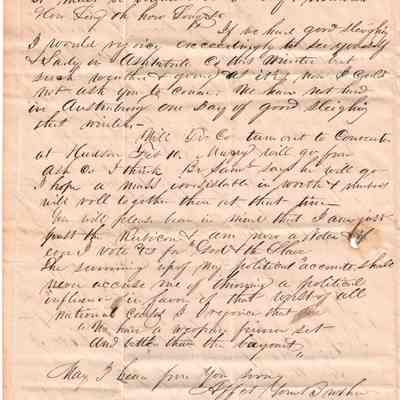 How Long Oh how Long &c
If we had good sleighing
I would rejoice exceedingly to see yourself
& Lady in Ashtabula Co this winter but
such weather & going as it is now I could
not ask you to come. We have not had
in Austinburg one day of good sleighing
this winter.
Will Co turn out to Convention
at Hudson Feb 10. Many will go from
Ash Co I think. Br says he will go
I hope a mass irresistable in worth & numbers
will roll together there at that time
You will please bear in mind that I am just
past the Rubicon & am now a voter & if
ever I vote tis for "God & the Slave"
The summing up of my political accounts shall
never accuse me of throwing a political
influence in favor of that worst of all
national curses I rejoice that
"We have a weapon firmer set
And better than the bayonet"
May I hear from You soon
Aff Your Brother